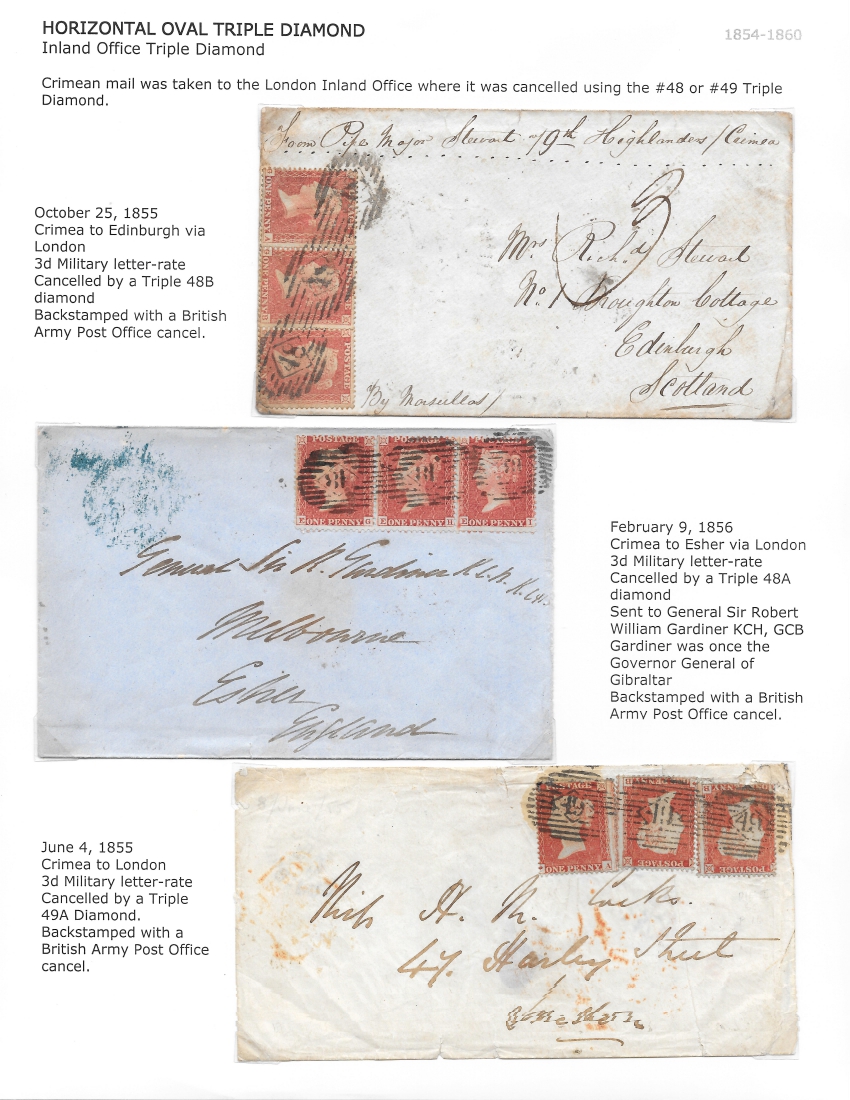 HORIZONTAL OVAL TRIPLE DIAMOND
1854-1860
Inland Office Triple Diamond
Crimean mail was taken to the London Inland Office where it was cancelled using the #48 or #49 Triple
Diamond.
October 25, 1855
Crimea to Edinburgh via
London
3d Military letter-rate
Cancelled by a Triple 48B
diamond
Backstamped with a British
Army Post Office cancel.
From Pipe Major Stewart 79th Highlanders / Crimea
3
Mrs Richd Stewart
No. 1 Broughton Cottage
Edinburgh
Scotland
By Marseilles /
ONE PENNY
POSTAGE
POSTAGE
ONE PENNY
ONE PENNY
ONE PENNY
General Sir R. Gardiner K.C.B.
Melbourne
Esher
England
February 9, 1856
Crimea to Esher via London
3d Military letter-rate
Cancelled by a Triple 48A
diamond
Sent to General Sir Robert
William Gardiner KCH, GCB
Gardiner was once the
Governor General of
Gibraltar
Backstamped with a British
Army Post Office cancel.
June 4, 1855
Crimea to London
3d Military letter-rate
Cancelled by a Triple
49A Diamond.
Backstamped with a
British Army Post Office
cancel.
ONE PENNY
POSTAGE
Miss H. M. Cocks.
47. Harley Street
London